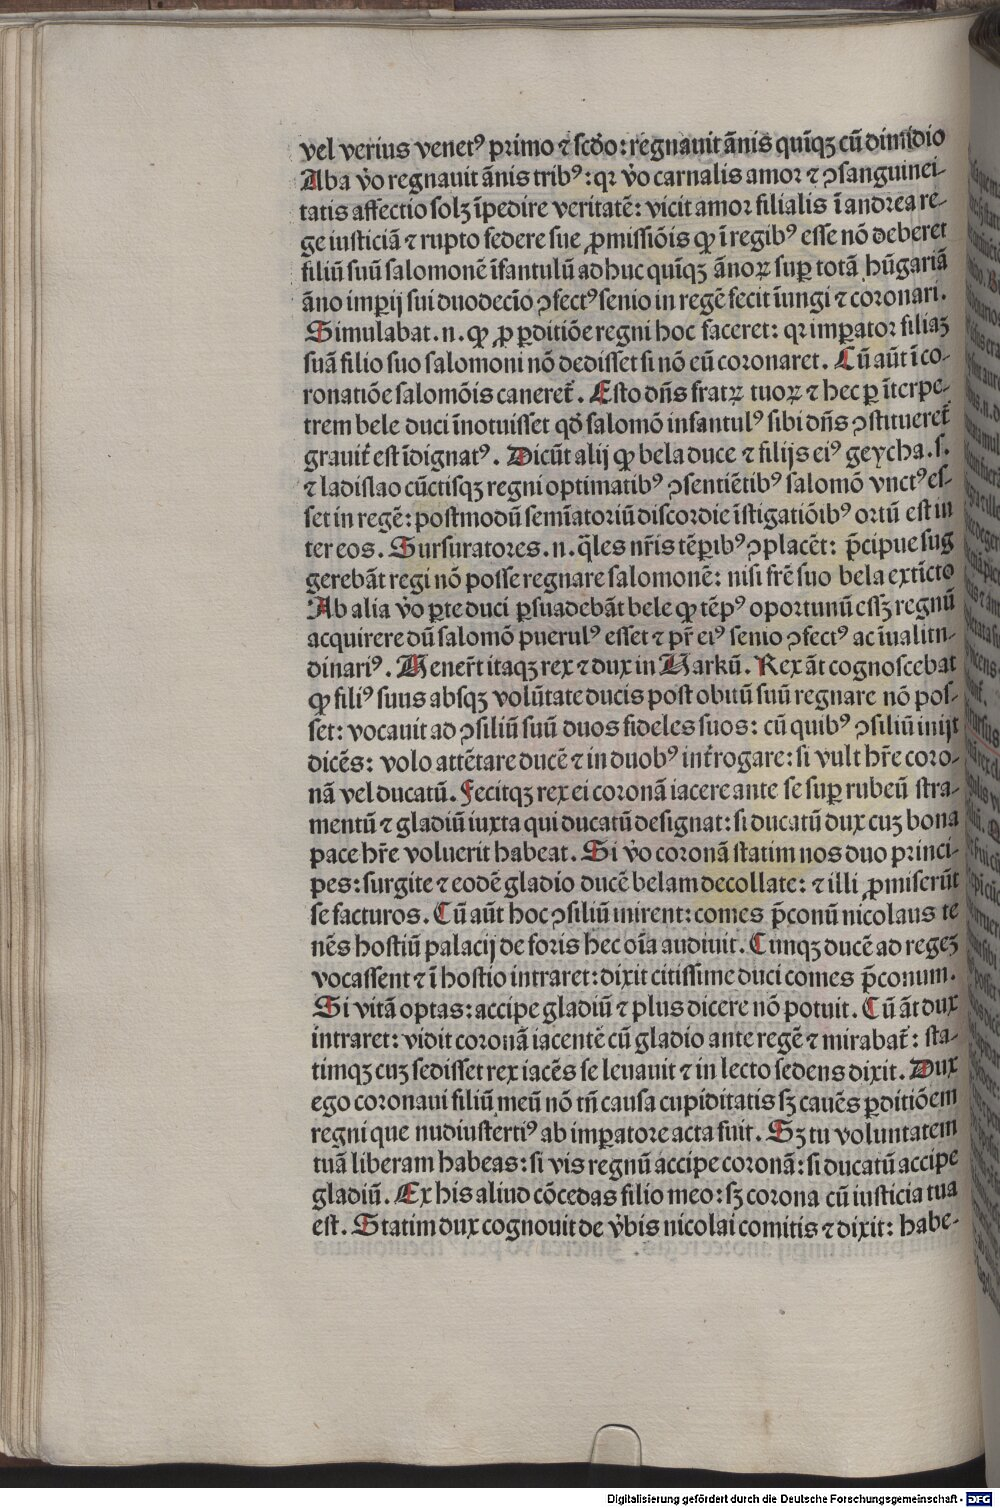 vel verius venetꝰ primo ⁊ scd̄o: regnauit ānis quīqꝫ cū dimidio
Aba v̓o regnauit ānis tribꝰ: qꝛ v̓o carnalis amor ⁊ ꝯsanguinei-
tatis affectio solꝫ īpedire veritatē: vicit amor filialis ī andrea re-
ge iusticiā ⁊ rupto federe sue ꝓmissiōis ꝙ ī regibꝰ esse nō deberet
filiū suū salomonē īfantulū adhuc quīqꝫ ānoꝝ suꝑ totā hūgariā
āno imꝑij sui duodecīo ꝯfectꝰ senio in regē fecit īungi ⁊ coronari.
Simulabat .n. ꝙ ꝓ ꝑditiōe regni hoc faceret: qꝛ imꝑator filiaꝫ
suā filio suo salomoni nō dedisset si nō eū coronaret. Cū aūt ī co-
ronatiōe salomōis caneret᷑. Esto dn̄s fratꝝ tuoꝝ ⁊ hec ꝑ īterpe-
trem bele duci īnotuisset qd̓ salomō infantulꝰ sibi dn̄s ꝯstitueret᷑
grauit᷑ est īdignatꝰ. Dicūt alij ꝙ bela duce ⁊ filijs eiꝰ geycha .s.
⁊ ladislao cūctisqꝫ regni optimatibꝰ ꝯsentiētibꝰ salomō vnctꝰ es-
set in regē: postmodū semīatoriū discordie īstigatiōibꝰ ortū est in
ter eos. Sursuratores .n. q̄les nr̄is tēꝑibꝰ ꝯplacēt: p̄cipue sug
gerebāt regi nō posse regnare salomonē: nisi fr̄e suo bela extīcto
Ab alia v̓o ꝑte duci ꝑsuadebāt bele ꝙ tēpꝰ oportunū essꝫ regnū
acquirere dū salomō puerulꝰ esset ⁊ pr̄ eiꝰ senio ꝯfectꝰ ac īualitu-
dinariꝰ. Uener̄t itaqꝫ rex ⁊ dux in Uarkū. Rex āt cognoscebat
ꝙ filiꝰ suus absqꝫ volūtate ducis post obitū suū regnare nō pos-
set: vocauit ad ꝯsiliū suū duos fideles suos: cū quibꝰ ꝯsiliū inijt
dicēs: volo attētare ducē ⁊ in duobꝰ int᷑rogare: si vult hr̄e coro-
nā vel ducatū. Fecitqꝫ rex ei coronā iacere ante se suꝑ rubeū stra-
mentū ⁊ gladiū iuxta qui ducatū designat: si ducatū dux cuꝫ bona
pace hr̄e voluerit habeat. Si v̓o coronā statim nos duo princi-
pes: surgite ⁊ eodē gladio ducē belam decollate: ⁊ illi ꝓmiserūt
se facturos. Cū aūt hoc ꝯsiliū inirent: comes p̄conū nicolaus te
nēs hostiū palacij de foris hec oīa audiuit. Cunqꝫ ducē ad regeꝫ
vocassent ⁊ ī hostio intraret: dixit citissime duci comes p̄conum.
Si vitā optas: accipe gladiū ⁊ plus dicere nō potuit. Cū āt dux
intraret: vidit coronā iacentē cū gladio ante regē ⁊ mirabat᷑: sta-
timqꝫ cuꝫ sedisset rex iacēs se leuauit ⁊ in lecto sedens dixit. Dux
ego coronaui filiū meū nō tn̄ causa cupiditatis sꝫ cauēs ꝑditiōem
regni que nudiustertiꝰ ab imꝑatore acta fuit. Sꝫ tu voluntatem
tuā liberam habeas: si vis regnū accipe coronā: si ducatū accipe
gladiū. Ex his aliud cōcedas filio meo: sꝫ corona cū iusticia tua
est. Statim dux cognouit de v̓bis nicolai comitis ⁊ dixit: habe-
Digitalisierung gefördert durch die Deutsche Forschungsgemeinschaft - DFG